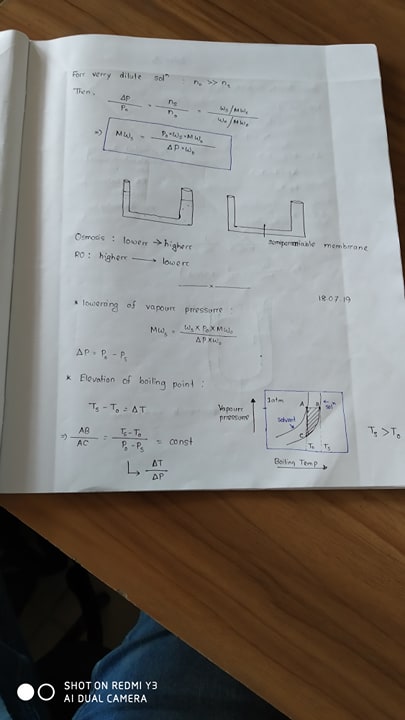 For verry dilute solⁿ : n₀ >> nₛ
Then,
ΔP/P₀ = nₛ/n₀ = Wₛ/MWₛ / W₀/MW₀
⇒ MWₛ = P₀×Wₛ×MW₀ / ΔP×W₀
Osmosis : lower → higher
semipermiable membrane
RO : higher → lower
18.07.19
* lowering of vapour pressure :
MWₛ = Wₛ × P₀ × MW₀ / ΔP×W₀
ΔP = P₀ - Pₛ
* Elevation of boiling point :
Tₛ - T₀ = ΔT
⇒ AB/AC = Tₛ-T₀ / P₀-Pₛ = const
↳ ΔT/ΔP
Vapour pressure ↑
1atm
A B
solⁿ
solvent
C
T₀ Tₛ
Boiling Temp →
Tₛ > T₀
SHOT ON REDMI Y3
AI DUAL CAMERA